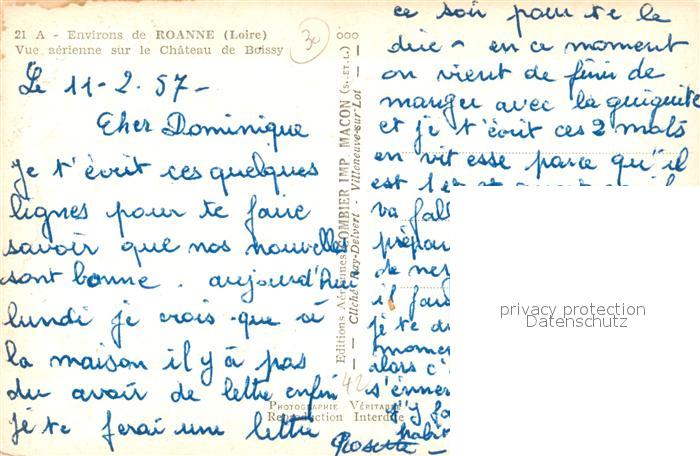 21 A - Environs de ROANNE (Loire)
Vue aérienne sur le Château de Boissy
30
Le 11-2.57-
Cher Dominique
Je t'écrit ces quelques
lignes pour te faire
savoir que nos nouvelle
sont bonne. aujourd'hui
lundi je crois que à
la maison il y à pas
du avoir de lettre enfin
je te ferai une lettre
Rosette -
PHOTOGRAPHIE VÉRITABLE
Reproduction Interdite
Editions Aériennes COMBIER IMP. MACON (S.-ET-L.)
Cliché Ray-Delvert - Villeneuve-sur-Lot
42
ce soir pour te le
dire - en ce moment
on vient de finir de
manger avec la guiguite
et je t'écrit ces 2 mots
en vitesse parce qu'il
est 1
va fal
prépar
de
il fau
je te
mome
alors c'
s'énner
j'y fa
habi
privacy protection
Datenschutz